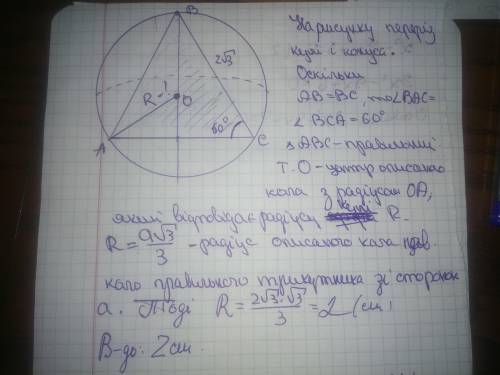 B
2√3
R
O
60°
A
C
На рисунку переріз
кулі і конуса.
Оскільки
AB=BC, то ∠BAC=
∠BCA=60°
ABC-правильний
Т. О-центр описаного
кола з радіусом OA,
який відповідає радіусу кулі R.
R = a√3/3 - радіус описаного кола
кого правильного трикутника зі стороною
a. Тоді R = 2√3·√3/3 = 2 (см)
В-дь: 2см.